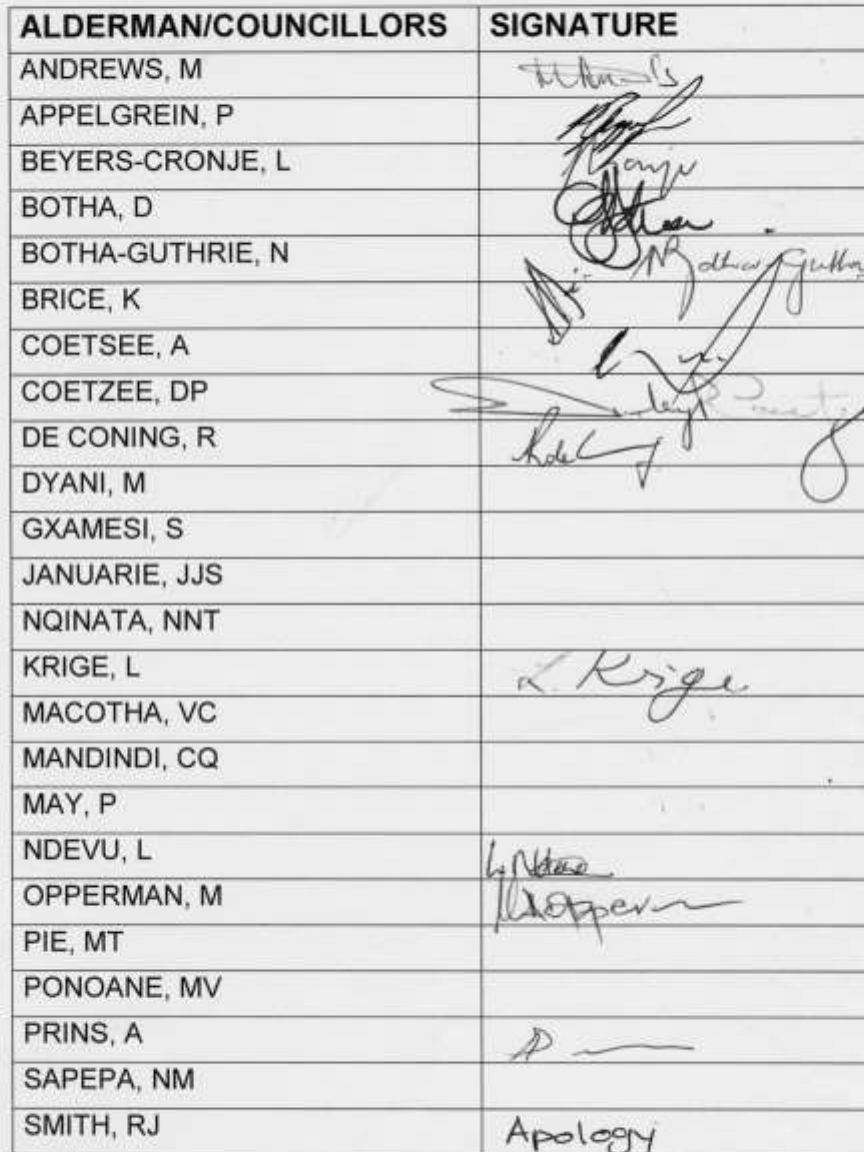 ALDERMAN/COUNCILLORS SIGNATURE
ANDREWS, M
APPELGREIN, P
BEYERS-CRONJE, L
BOTHA, D
BOTHA-GUTHRIE, N
BRICE, K
COETSEE, A
COETZEE, DP
DE CONING, R
DYANI, M
GXAMESI, S
JANUARIE, JJS
NQINATA, NNT
KRIGE, L L. Krige
MACOTHA, VC
MANDINDI, CQ
MAY, P
NDEVU, L
OPPERMAN, M
PIE, MT
PONOANE, MV
PRINS, A
SAPEPA, NM
SMITH, RJ Apology